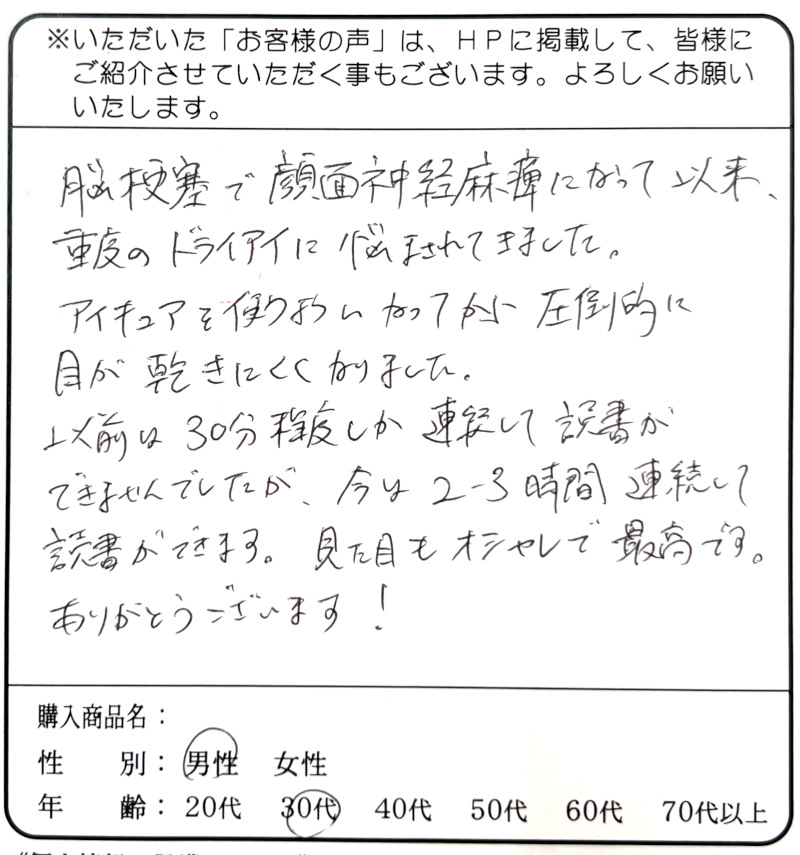 ※いただいた「お客様の声」は、HPに掲載して、皆様に
ご紹介させていただく事もございます。よろしくお願い
いたします。
脳梗塞で顔面神経麻痺になって以来、
重度のドライアイに悩まされてきました。
アイキュアを使うようになってから圧倒的に
目が乾きにくくなりました。
以前は30分程度しか連続して読書が
できませんでしたが、今は2-3時間連続して
読書ができます。見た目もオシャレで最高です。
ありがとうございます!
購入商品名:
性 別: 男性 女性
年 齢: 20代 30代 40代 50代 60代 70代以上